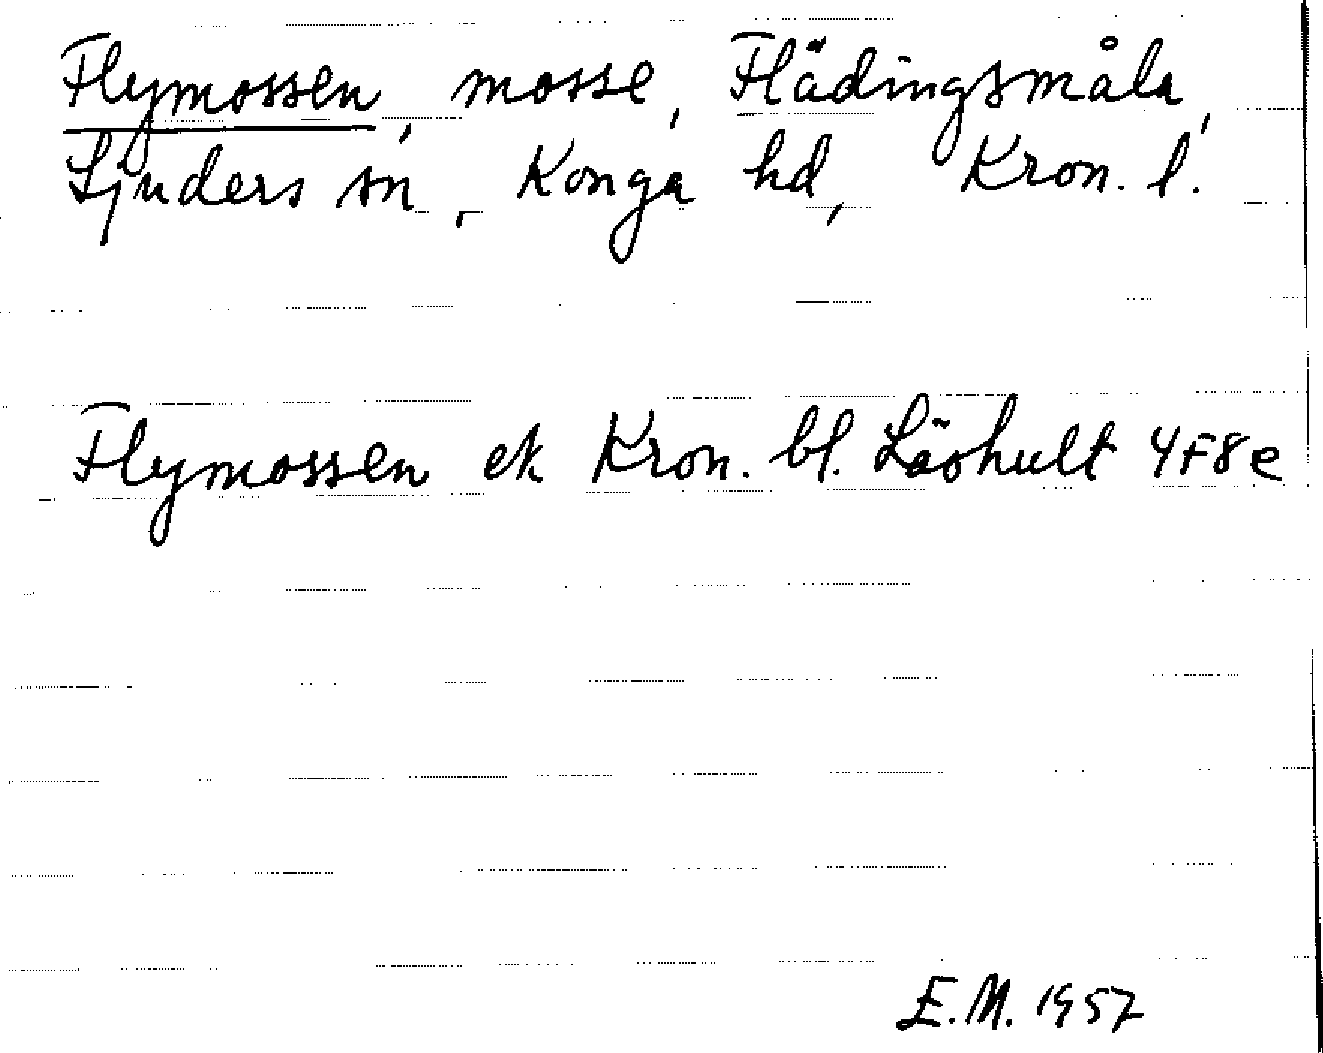 Flymossen, mosse, Flädingsmåla,
Ljuders sn, Konga hd, Kron. l.
Flymossen ek Kron. bl. Läshult 4F8e
E.M. 1957